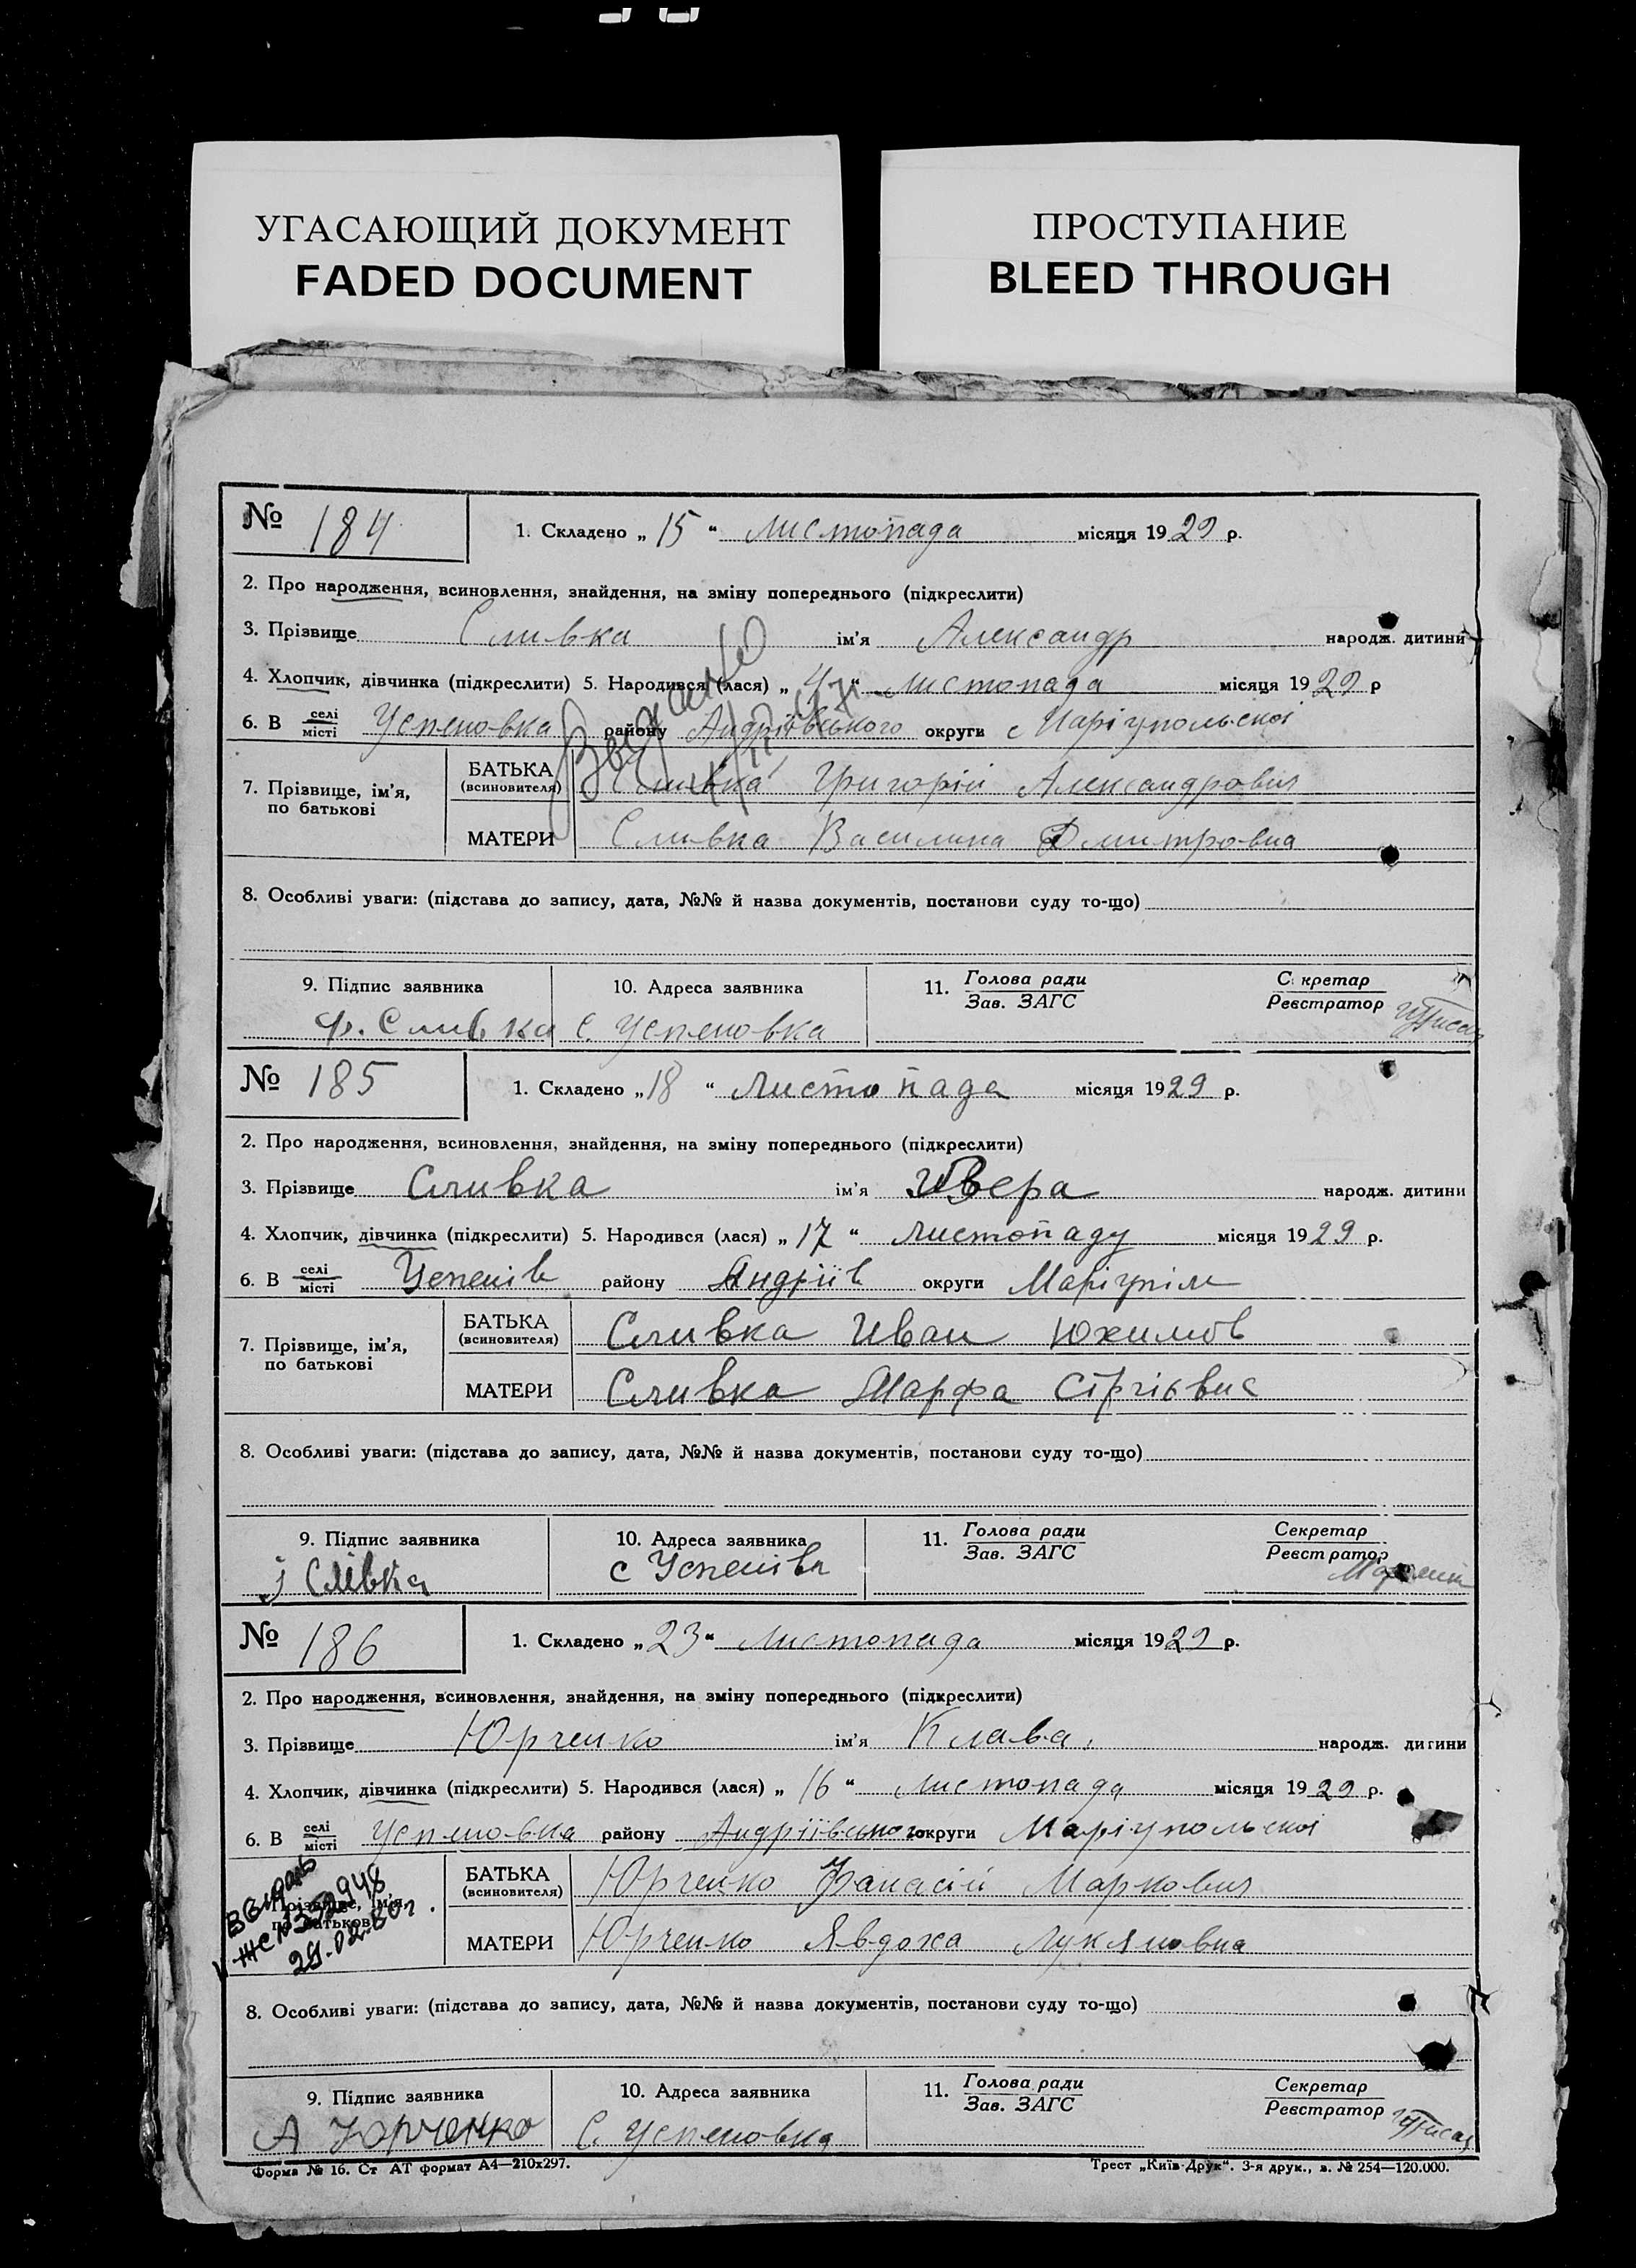 УГАСАЮЩИЙ ДОКУМЕНТ
FADED DOCUMENT
ПРОСТУПАНИЕ
BLEED THROUGH
№ 184 1. Складено „ 15 “ листопада місяця 1929 р.
2. Про народження, всиновлення, знайдення, на зміну попереднього (підкреслити)
3. Прізвище Сливка ім’я Александр народж. дитини
4. Хлопчик, дівчинка (підкреслити) 5. Народився (лася) „ 4 “ листопада місяця 1929 р
6. В селі/місті Успеновка району Андріївського округи Маріупольскої
7. Прізвище, ім’я, по батькові
БАТЬКА (всиновителя) Сливка Григорій Александрович
МАТЕРИ Сливка Василина Дмитровна
8. Особливі уваги: (підстава до запису, дата, №№ й назва документів, постанови суду то-що)
9. Підпис заявника 10. Адреса заявника 11. Голова ради/Зав. ЗАГС С кретар/Реєстратор
Ф. Сливка с. Успеновка
№ 185 1. Складено „ 18 “ листопада місяця 1929 р.
2. Про народження, всиновлення, знайдення, на зміну попереднього (підкреслити)
3. Прізвище Сливка ім’я Вера народж. дитини
4. Хлопчик, дівчинка (підкреслити) 5. Народився (лася) „ 17 “ листопаду місяця 1929 р.
6. В селі/місті Успенів району Андріїв округи Маріупіль
7. Прізвище, ім’я, по батькові
БАТЬКА (всиновителя) Сливка Иван Юхимов
МАТЕРИ Сливка Марфа
8. Особливі уваги: (підстава до запису, дата, №№ й назва документів, постанови суду то-що)
9. Підпис заявника 10. Адреса заявника 11. Голова ради/Зав. ЗАГС Секретар/Реєстратор
і Слівка с Успенівк
№ 186 1. Складено „ 23 “ листопада місяця 1929 р.
2. Про народження, всиновлення, знайдення, на зміну попереднього (підкреслити)
3. Прізвище Юрченко ім’я Клава народж. дитини
4. Хлопчик, дівчинка (підкреслити) 5. Народився (лася) „ 16 “ листопада місяця 1929 р.
6. В селі/місті Успеновка району Андріївського округи Маріупольскої
7. Прізвище, ім’я, по батькові
БАТЬКА (всиновителя) Юрченко Фанасій Маркович
МАТЕРИ Юрченко Явдоха Лукяновна
8. Особливі уваги: (підстава до запису, дата, №№ й назва документів, постанови суду то-що)
9. Підпис заявника 10. Адреса заявника 11. Голова ради/Зав. ЗАГС Секретар/Реєстратор
А Юрченко С. Успеновка
Форма № 16. Ст АТ формат А4—210х297. Трест „Київ-Друк“. 3-я друк., з. № 254—120.000.